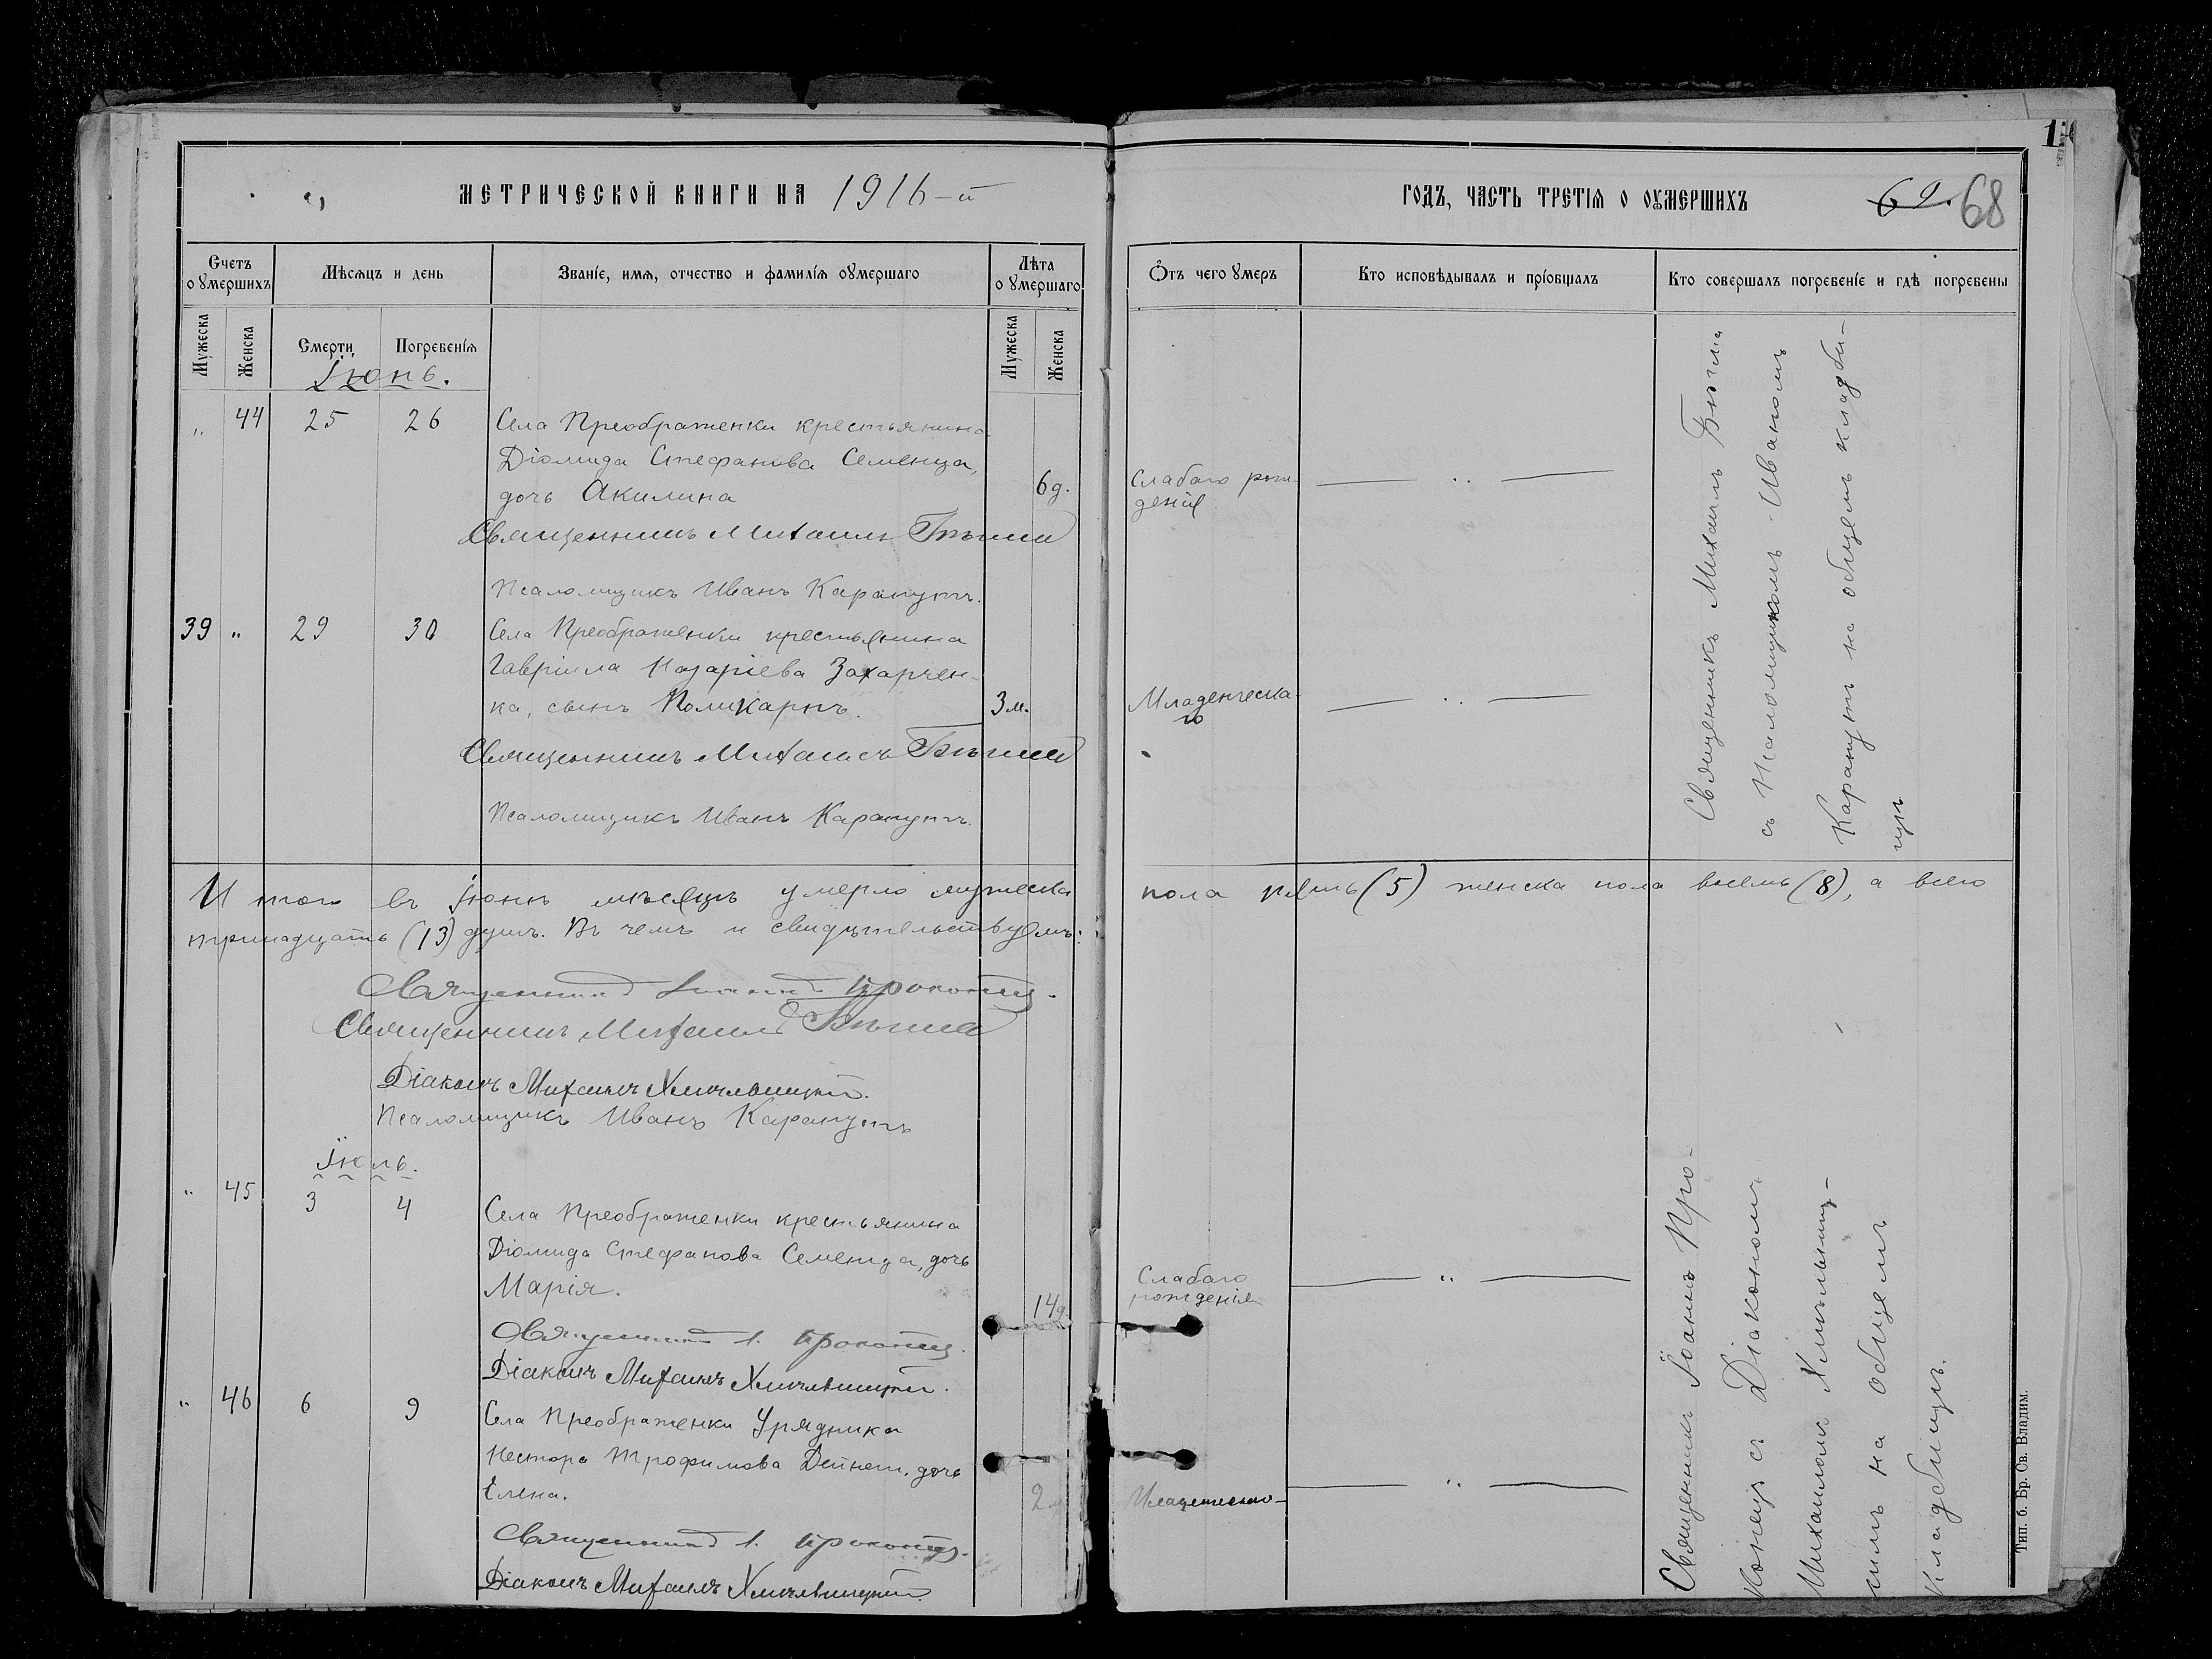 МЕТРИЧЕСКОЙ КНИГИ НА 1916-й
Счетъ оумершихъ
Мѣсяцъ и день
Званіе, имя, отчество и фамилія оумершаго
Лѣта оумершаго
Мужеска
Женска
Смерти
Погребенія
Мужеска
Женска
Іюнь.
„ 44 25 26 Села Преображенки крестьянина
Діомида Стефанова Семенца,
дочь Акилина 6 д.
Священникъ Михаилъ
Псаломщикъ Иванъ Карапутъ.
39 „ 29 30 Села Преображенки крестьянина
Гавріила Назаріева Захарчен-
ка, сынъ Поликарпъ. 3 м.
Священникъ Михаилъ
Псаломщикъ Иванъ Карапутъ.
Итого въ Іюнѣ мѣсяцѣ умерло мужеска
тринадцать (13) душъ. Въ чемъ и свидѣтельствуемъ:
Священникъ Іоаннъ Прокопецъ.
Священникъ Михаилъ
Діаконъ Михаилъ Хмѣльницкій.
Псаломщикъ Иванъ Карапутъ
Іюль.
„ 45 3 4 Села Преображенки крестьянина
Діомида Стефанова Семенца, дочь
Марія. 14 д.
Священникъ І. Прокопецъ.
Діаконъ Михаилъ Хмѣльницкій.
„ 46 6 9 Села Преображенки Урядника
Нестора Трофимова дочь
Елена. 2
Священникъ І. Прокопецъ.
Діаконъ Михаилъ Хмѣльницкій.
ГОДЪ, ЧАСТЬ ТРЕТІЯ О ОУМЕРШИХЪ
69. 68
1
Отъ чего умеръ
Кто исповѣдывалъ и пріобщалъ
Кто совершалъ погребеніе и гдѣ погребены
Слабаго рож-
денія „
Младенческа-
го „
Священникъ Михаилъ
съ Псаломщикомъ Иваномъ
Карапутъ на общемъ кладби-
щѣ
пола пять (5) женска пола восемь (8), а всего
Слабаго
рожденія „
Младенческаго „
Священникъ Іоаннъ Про-
копецъ съ Діакономъ
Михаиломъ Хмѣльниц-
кимъ на общемъ
кладбищѣ.
Тип. б. Бр. Св. Владим.